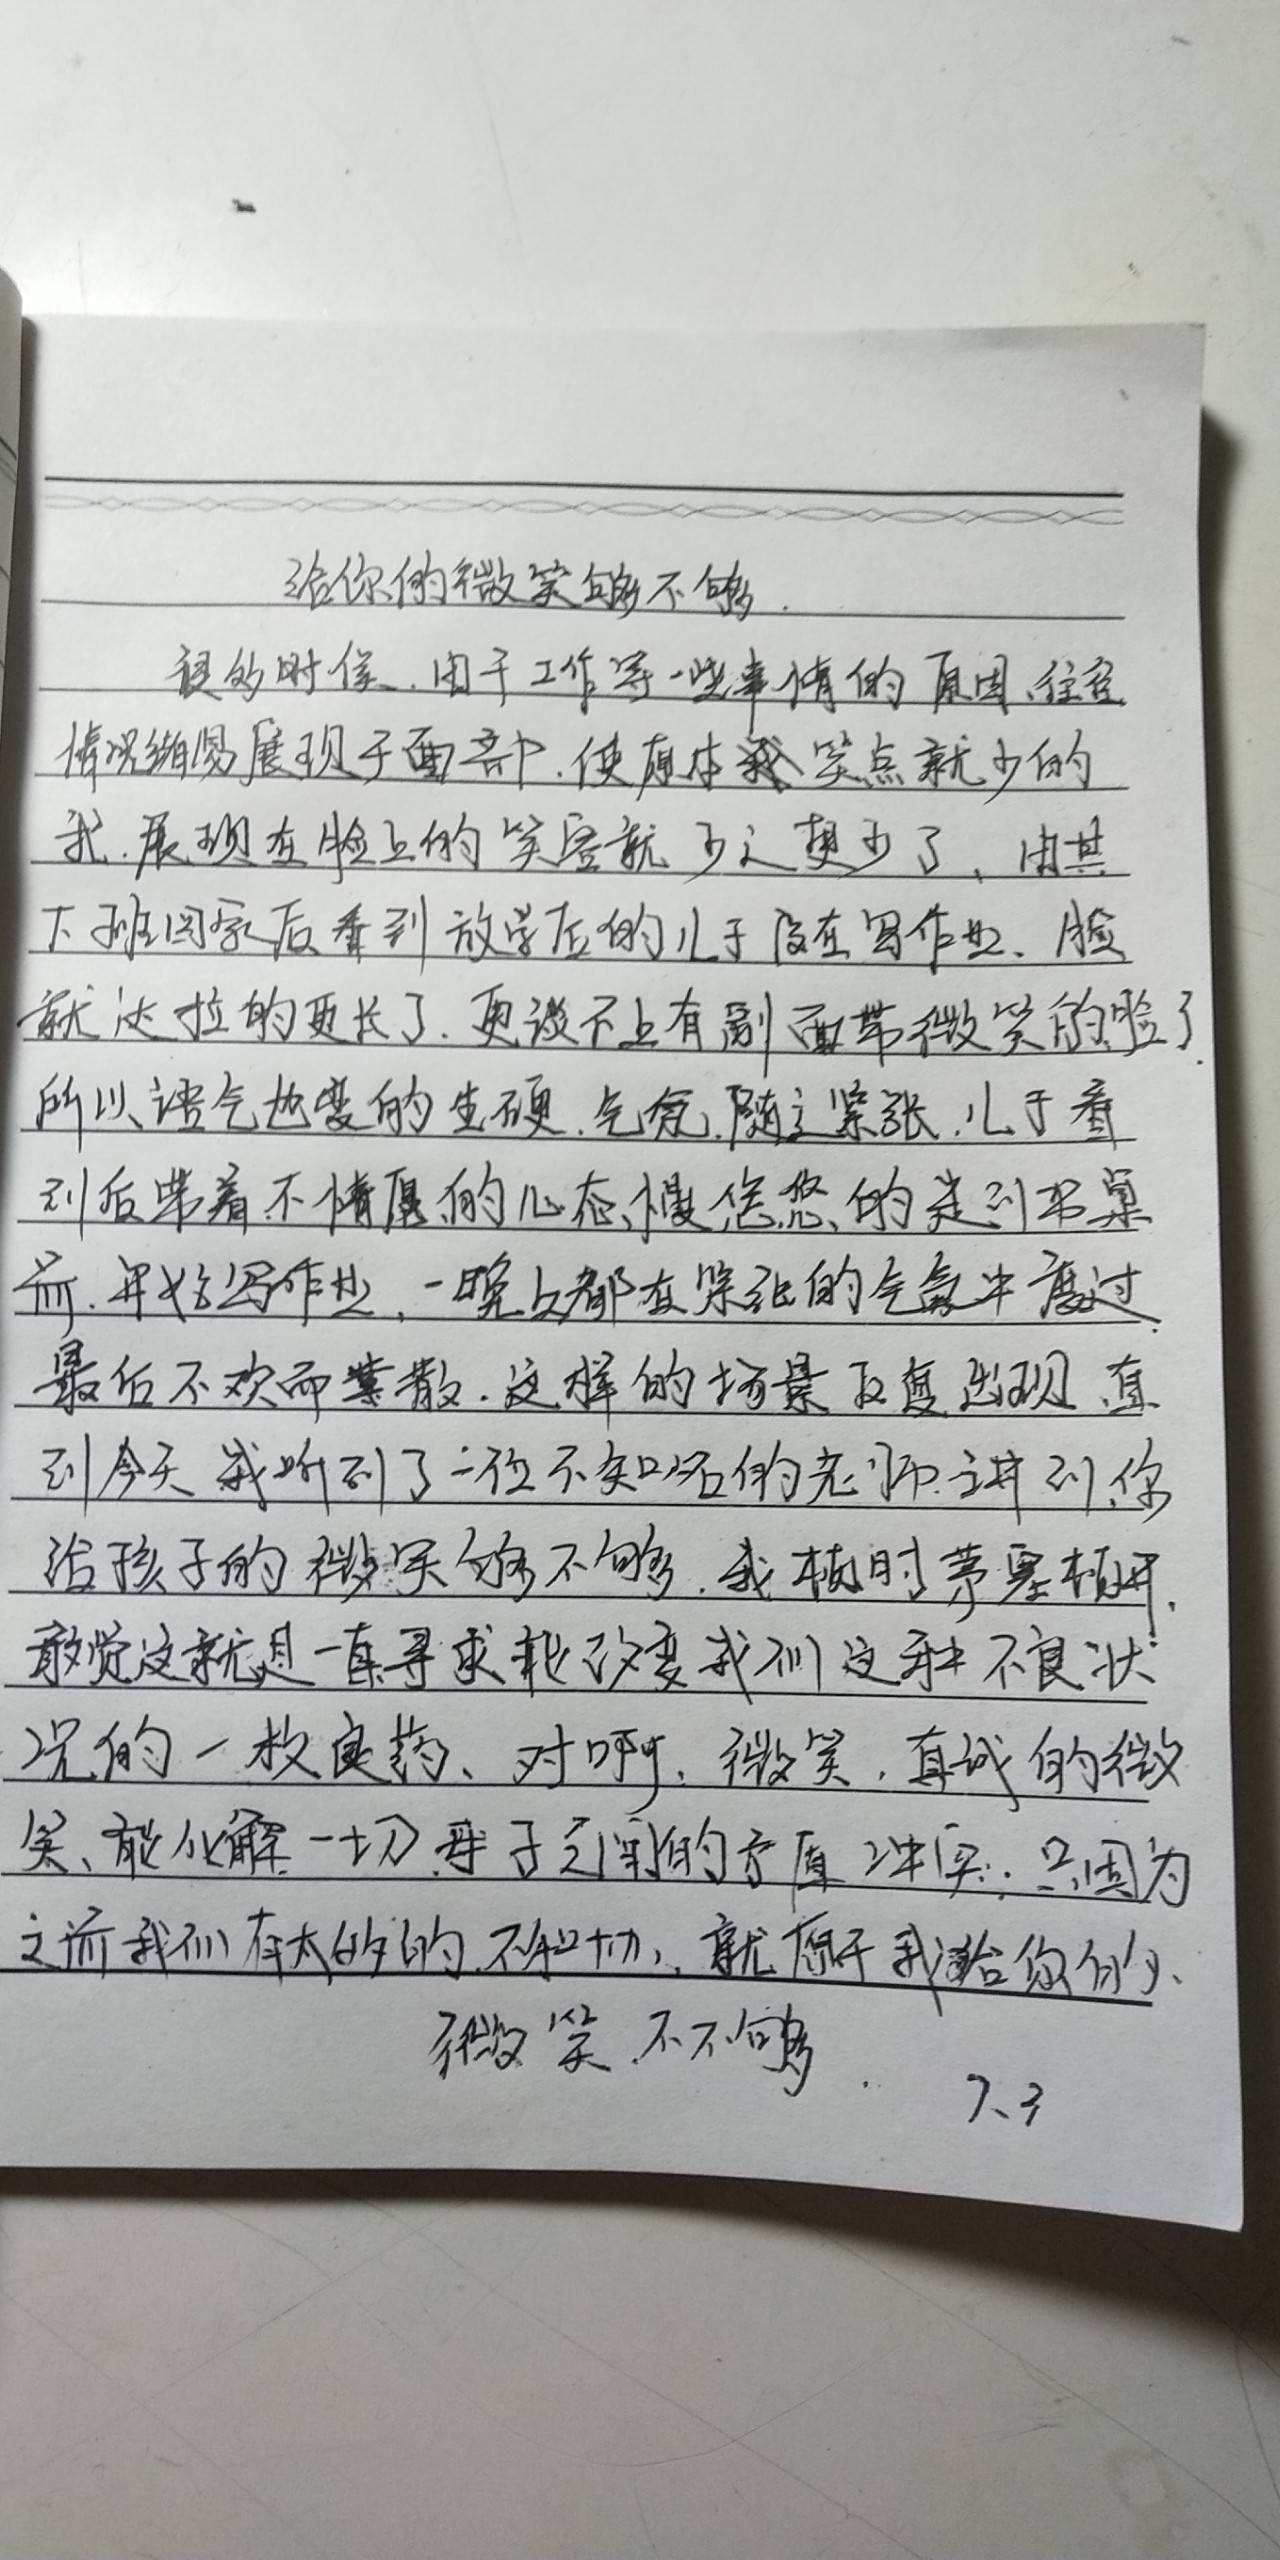 给你的微笑够不够.
很多时候、由于工作等一些事情的原因、往往
情况细易展现于面部.使原本我笑点就少的
我.展现在脸上的笑容就少之更少了、由其
下班回家后看到放学后的儿子没在写作业、脸
就达拉的更长了.更谈不上有副面带微笑的脸了.
所以语气也变的生硬.气氛.随之紧张.儿子看
到后带着不情愿的心态、慢悠悠的走到书桌
前.开始写作业,一晚上都在紧张的气氛中度过.
最后不欢而散.这样的场景反复出现.直
到今天我听到了一位不知名的老师讲到.你
给孩子的微笑够不够.我顿时茅塞顿开.
敢觉这就是一直寻求能改变我们这种不良状
况的一枚良药、对啊,微笑.真诚的微
笑、能化解一切母子之间的矛盾冲突.只因为
之前我们有太多的.不和切、就原于我给你的、
微笑.不不够.
7、3